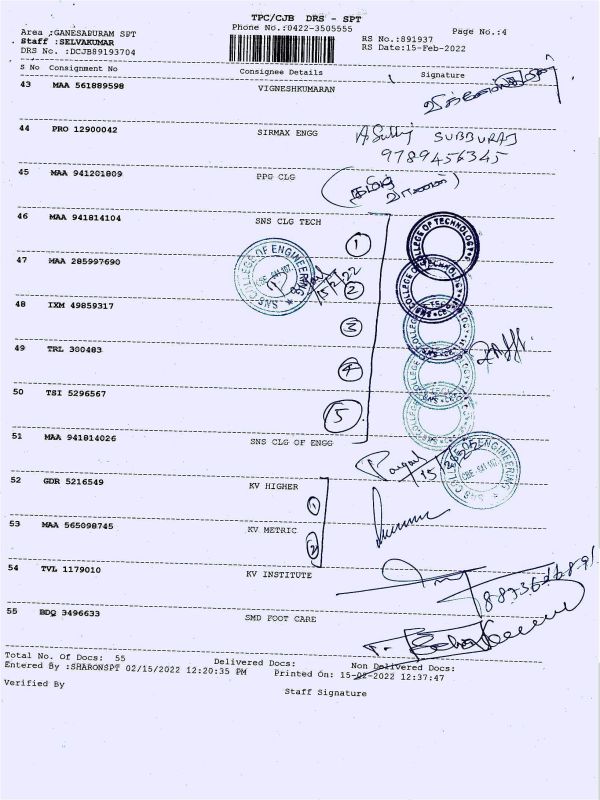 TPC/CJB DRS - SPT
Area ;GANESAPURAM SPT Phone No.:0422-3505555 Page No.:4
Staff :SELVAKUMAR RS No.:891937
DRS No. :DCJB89193704 RS Date:15-Feb-2022
S No Consignment No Consignee Details Signature
43 MAA 561889598 VIGNESHKUMARAN
44 PRO 12900042 SIRMAX ENGG SUBBURAJ
9789456345
45 MAA 941201809 PPG CLG
46 MAA 941814104 SNS CLG TECH 1
47 MAA 285997690 2
SNS COLLEGE OF ENGINEERING
15/2/22
48 IXM 49859317 3
49 TRL 300483 4
50 TSI 5296567 5
51 MAA 941814026 SNS CLG OF ENGG
SNS COLLEGE OF ENGINEERING
52 GDR 5216549 KV HIGHER 1
53 MAA 565098745 KV METRIC 2
54 TVL 1179010 KV INSTITUTE
55 BDQ 3496633 SMD FOOT CARE
Total No. Of Docs: 55 Delivered Docs: Non Delivered Docs:
Entered By :SHARONSPT 02/15/2022 12:20:35 PM Printed On: 15-02-2022 12:37:47
Verified By Staff Signature